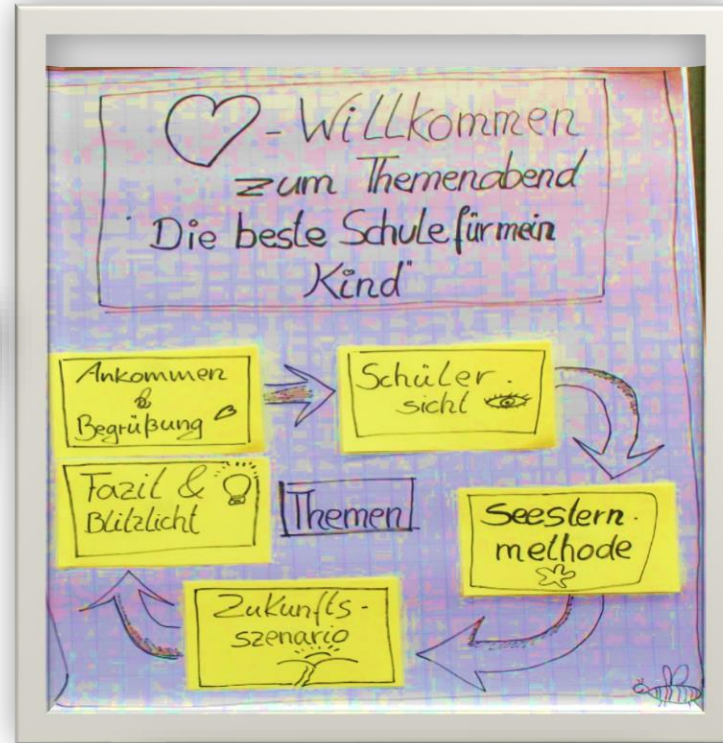 - Willkommen
zum Themenabend
"Die beste Schule für mein
Kind"
Ankommen
&
Begrüßung
Schüler-
sicht
Seestern-
methode
Zukunfts-
szenario
Fazit &
Blitzlicht
Themen